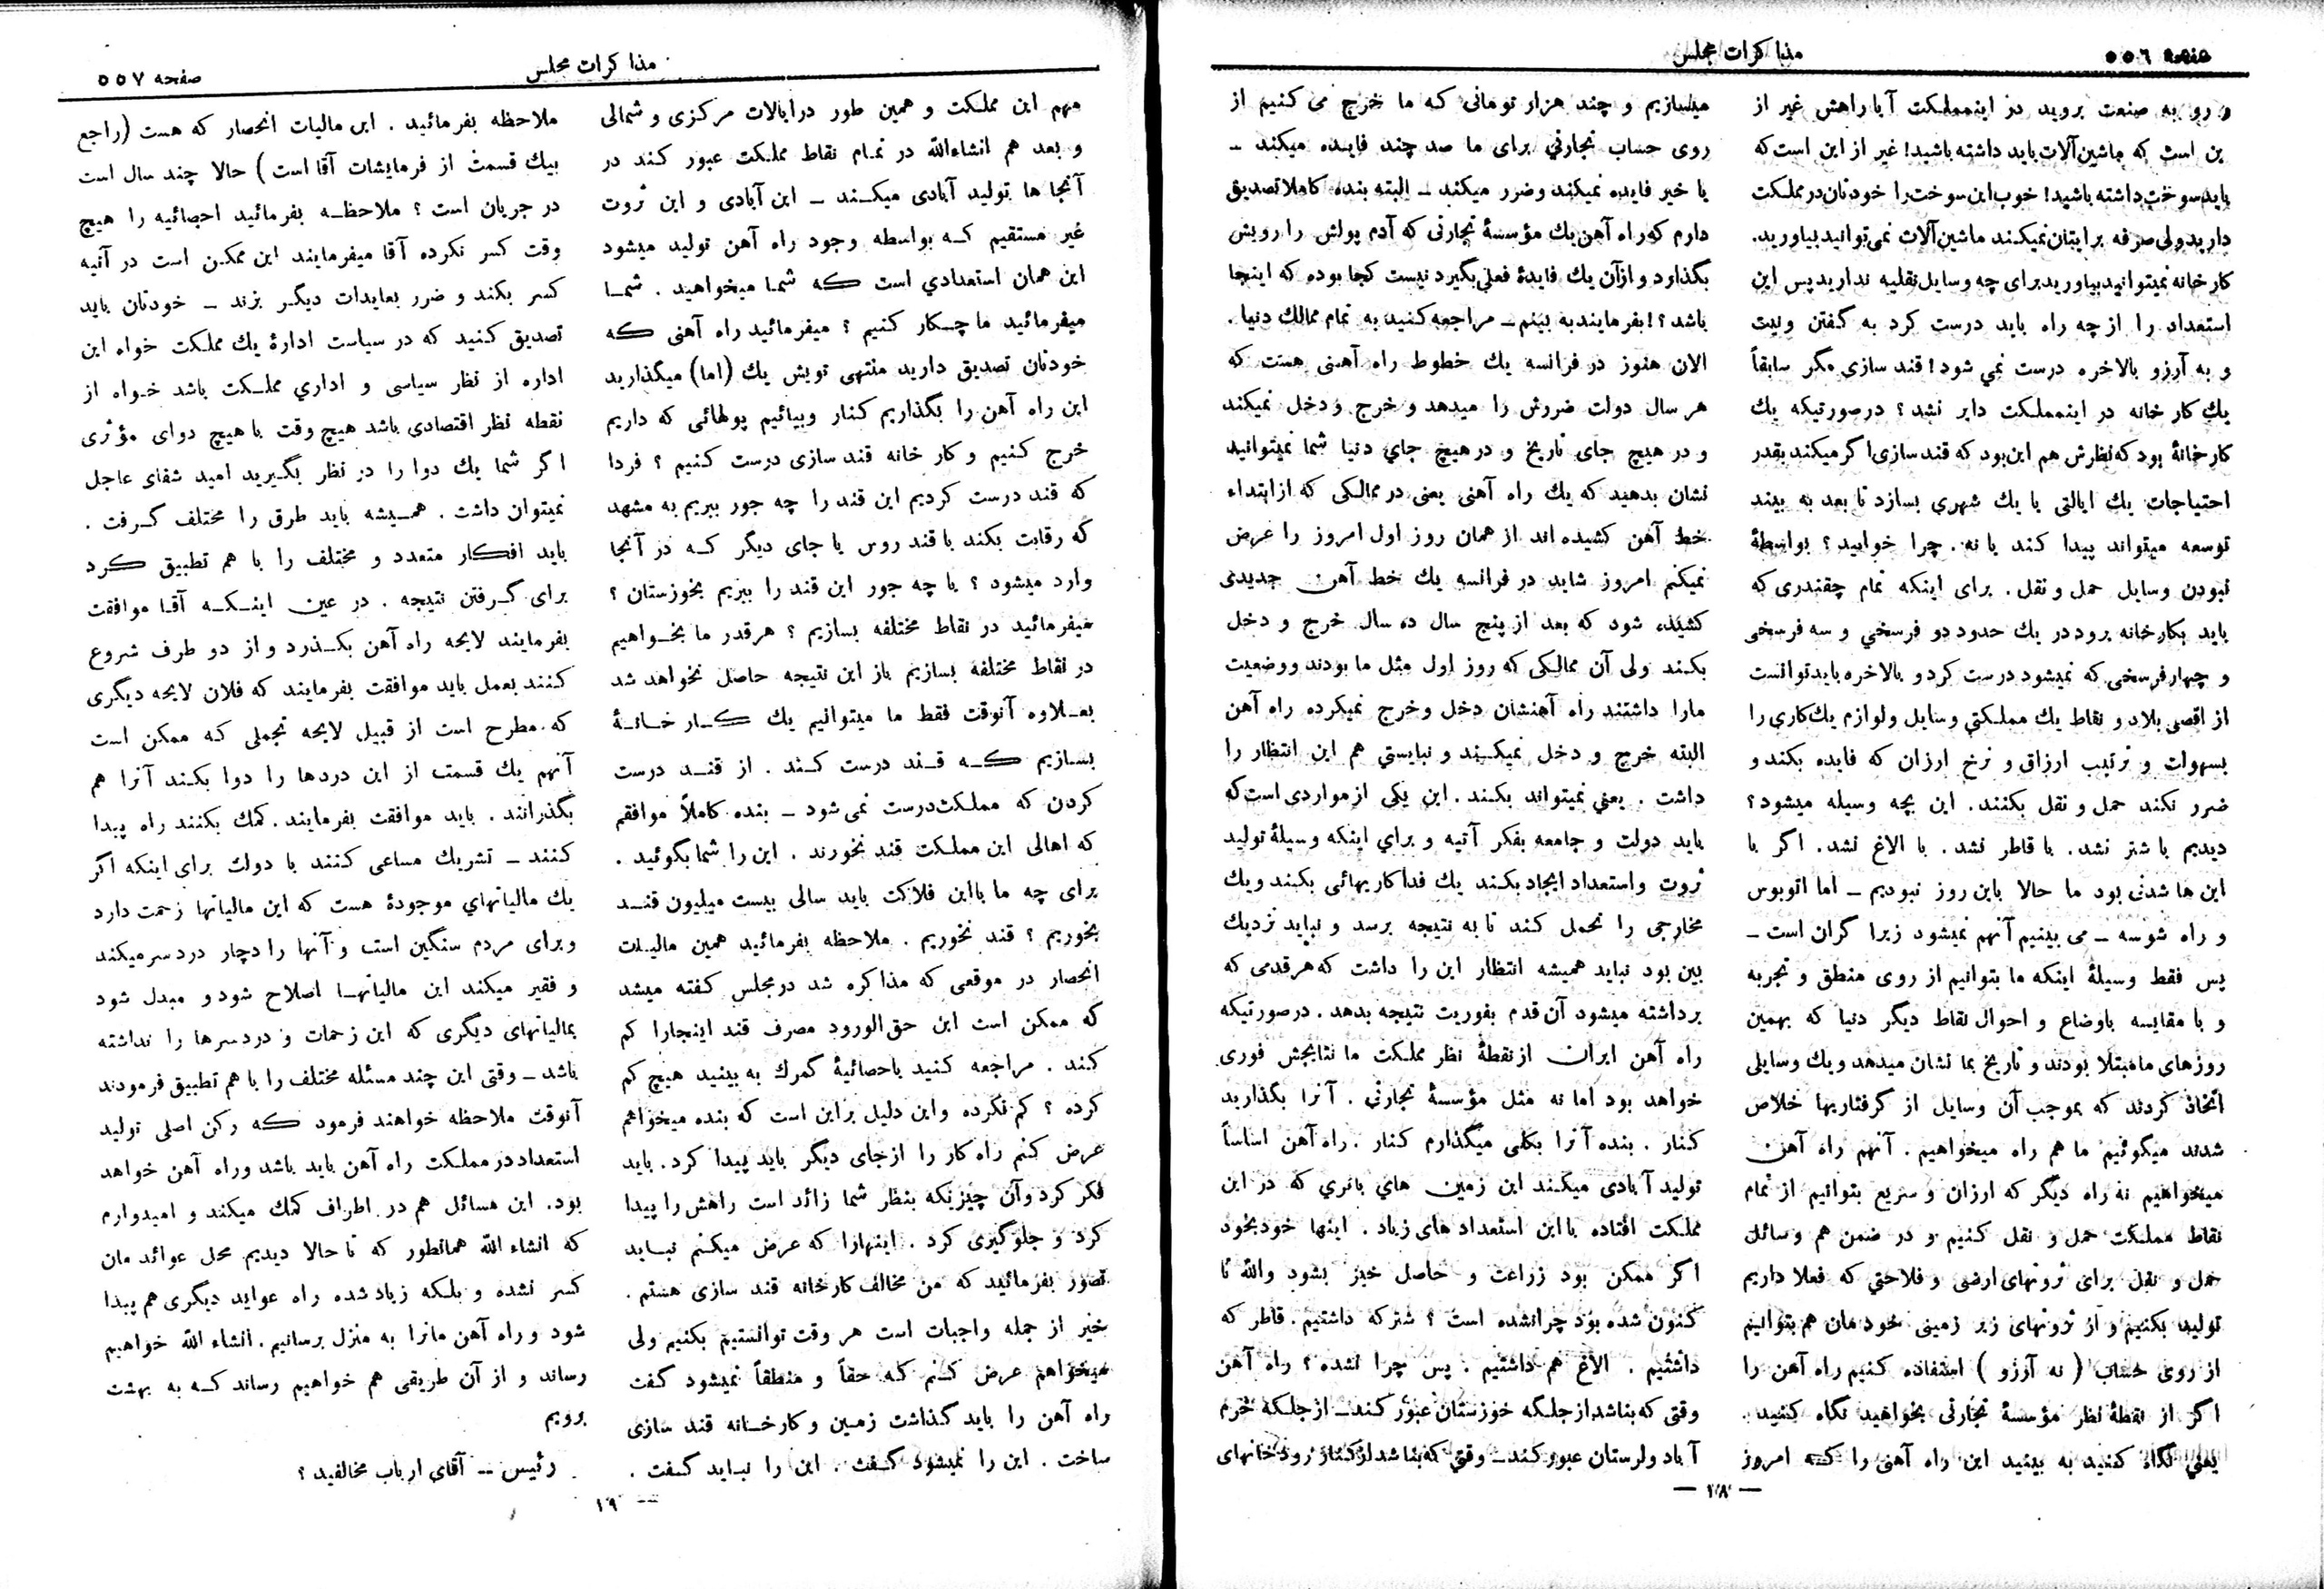 صفحه ٥٥٦
مذاکرات مجلس
و رو به صنعت بروید در اینمملکت آیا راهش غیر از
ین است که ماشین‌آلات باید داشته باشید! غیر از این است که
باید سوخت داشته باشید! خوب این سوخت را خودتان در مملکت
دارید ولی صرفه برایتان نمیکند ماشین‌آلات نمی‌توانید بیاورید.
کارخانه نمیتوانید بیاورید برای چه وسایل نقلیه ندارید پس این
استعداد را از چه راه باید درست کرد به گفتن ونیت
و به آرزو بالاخره درست نمی شود! قند سازی مگر سابقاً
یك کار خانه در اینمملکت دایر نشد؟ درصورتیکه یك
کارخانهٔ بود که نظرش هم این بود که قند سازی اگر میکند بقدر
احتیاجات یك ایالتی یا یك شهری بسازد تا بعد به بیند
توسعه میتواند پیدا کند یا نه. چرا خوابید؟ بواسطهٔ
نبودن وسایل حمل و نقل. برای اینکه تمام چقندری که
باید بکارخانه برود در یك حدود دو فرسخی و سه فرسخی
و چهار فرسخی که نمیشود درست کرد و بالاخره باید توانست
از اقصی بلاد و نقاط یك مملکتی وسایل ولوازم یك کاری را
بسهولت و ترتیب ارزاق و نرخ ارزان که فایده بکند و
ضرر نکند حمل و نقل بکنند. این بچه وسیله میشود؟
دیدیم با شتر نشد. با قاطر نشد. با الاغ نشد. اگر با
این ها شدنی بود ما حالا باین روز نبودیم ــ اما اتوبوس
و راه شوسه ــ می بینیم آنهم نمیشود زیرا گران است ــ
پس فقط وسیلهٔ اینکه ما بتوانیم از روی منطق و تجربه
و با مقایسه باوضاع و احوال نقاط دیگر دنیا که بهمین
روزهای مامبتلا بودند و تاریخ بما نشان میدهد و یك وسایلی
اتخاذ کردند که بموجب آن وسایل از گرفتاریها خلاص
شدند میگوئیم ما هم راه میخواهیم. آنهم راه آهن
میخواهیم نه راه دیگر که ارزان و سریع بتوانیم از تمام
نقاط مملکت حمل و نقل کنیم و در ضمن هم وسائل
حمل و نقل برای ثروتهای ارضی و فلاحتی که فعلا داریم
تولید بکنیم و از ثروتهای زیر زمینی خودمان هم بتوانیم
از روی حساب (نه آرزو) استفاده کنیم راه آهن را
اگر از نقطهٔ نظر مؤسسهٔ تجارتی بخواهید نگاه کنید.
یعنی نگاه کنید به بینید این راه آهنی را که امروز
میسازیم و چند هزار تومانی که ما خرج می کنیم از
روی حساب تجارتی برای ما صد چند فایده میکند ــ
یا خیر فایده نمیکند وضرر میکند ــ البته بنده کاملا تصدیق
دارم که راه آهن یك مؤسسهٔ تجارتی که آدم پولش را رویش
بگذارد و از آن یك فایدهٔ فعلی بگیرد نیست کجا بوده که اینجا
باشد؟! بفرمایند به بینم ــ مراجعه کنید به تمام ممالك دنیا.
الان هنوز در فرانسه یك خطوط راه آهنی هست که
هر سال دولت ضررش را میدهد و خرج و دخل نمیکند
و در هیچ جای تاریخ و در هیچ جای دنیا شما نمیتوانید
نشان بدهید که یك راه آهنی یعنی در ممالکی که از ابتداء
خط آهن کشیده اند از همان روز اول امروز را عرض
نمیکنم امروز شاید در فرانسه یك خط آهن جدیدی
کشیده شود که بعد از پنج سال ده سال خرج و دخل
بکند ولی آن ممالکی که روز اول مثل ما بودند ووضعیت
مارا داشتند راه آهنشان دخل وخرج نمیکرده راه آهن
البته خرج و دخل نمیکند و نبایستی هم این انتظار را
داشت. یعنی نمیتواند بکند. این یکی از مواردی است که
باید دولت و جامعه بفکر آتیه و برای اینکه وسیلهٔ تولید
ثروت واستعداد ایجاد بکند یك فداکاریهائی بکند ویك
مخارجی را تحمل کند تا به نتیجه برسد و نباید نزدیك
بین بود نباید همیشه انتظار این را داشت که هر قدمی که
برداشته میشود آن قدم بفوریت نتیجه بدهد. درصورتیکه
راه آهن ایران از نقطهٔ نظر مملکت ما نتایجش فوری
خواهد بود اما نه مثل مؤسسهٔ تجارتی. آنرا بگذارید
کنار. بنده آنرا بکلی میگذارم کنار. راه آهن اساساً
تولید آبادی میکند این زمین های بائری که در این
مملکت افتاده با این استعداد های زیاد. اینها خودبخود
اگر ممکن بود زراعت و حاصل خیز بشود والله تا
کنون شده بود چرا نشده است؟ شتر که داشتیم. قاطر که
داشتیم. الاغ هم داشتیم. پس چرا نشده؟ راه آهن
وقتی که بناشد از جلگه خوزستان عبور کند ــ از جلگه خرم
آباد ولرستان عبور کند ــ وقتی که بنا شد از کنار رودخانهای
— ۱۸ —
مذاکرات مجلس
صفحه ٥٥٧
مهم این مملکت و همین طور در ایالات مرکزی و شمالی
و بعد هم انشاءالله در تمام نقاط مملکت عبور کند در
آنجا ها تولید آبادی میکند ــ این آبادی و این ثروت
غیر مستقیم که بواسطه وجود راه آهن تولید میشود
این همان استعدادی است که شما میخواهید. شما
میفرمائید ما چکار کنیم؟ میفرمائید راه آهنی که
خودتان تصدیق دارید منتهی تویش یك (اما) میگذارید
این راه آهن را بگذاریم کنار وبیائیم پولهائی که داریم
خرج کنیم و کار خانه قند سازی درست کنیم؟ فردا
که قند درست کردیم این قند را چه جور ببریم به مشهد
که رقابت بکند با قند روس یا جای دیگر که در آنجا
وارد میشود؟ یا چه جور این قند را ببریم بخوزستان؟
میفرمائید در نقاط مختلفه بسازیم؟ هرقدر ما بخواهیم
در نقاط مختلفه بسازیم باز این نتیجه حاصل نخواهد شد
بعلاوه آنوقت فقط ما میتوانیم یك کار خانهٔ
بسازیم که قند درست کند. از قند درست
کردن که مملکت درست نمی شود ــ بنده کاملاً موافقم
که اهالی این مملکت قند نخورند. این را شما بگوئید.
برای چه ما با این فلاکت باید سالی بیست میلیون قند
بخوریم؟ قند نخوریم. ملاحظه بفرمائید همین مالیات
انحصار در موقعی که مذاکره شد در مجلس گفته میشد
که ممکن است این حق الورود مصرف قند اینجارا کم
کند. مراجعه کنید باحصائیهٔ گمرك به بینید هیچ کم
کرده؟ کم نکرده واین دلیل بر این است که بنده میخواهم
عرض کنم راه کار را از جای دیگر باید پیدا کرد. باید
فکر کرد و آن چیزیکه بنظر شما زائد است راهش را پیدا
کرد و جلوگیری کرد. اینهارا که عرض میکنم نباید
تصور بفرمائید که من مخالف کارخانه قند سازی هستم.
خیر از جمله واجبات است هر وقت توانستیم بکنیم ولی
میخواهم عرض کنم که حقاً و منطقاً نمیشود گفت
راه آهن را باید گذاشت زمین و کارخانه قند سازی
ساخت. این را نمیشود گفت. این را نباید گفت.
ملاحظه بفرمائید. این مالیات انحصار که هست (راجع
بیك قسمت از فرمایشات آقا است) حالا چند سال است
در جریان است؟ ملاحظه بفرمائید احصائیه را هیچ
وقت کسر نکرده آقا میفرمایند این ممکن است در آتیه
کسر بکند و ضرر بعایدات دیگر بزند ــ خودتان باید
تصدیق کنید که در سیاست ادارهٔ یك مملکت خواه این
اداره از نظر سیاسی و اداری مملکت باشد خواه از
نقطه نظر اقتصادی باشد هیچ وقت با هیچ دوای مؤثری
اگر شما یك دوا را در نظر بگیرید امید شفای عاجل
نمیتوان داشت. همیشه باید طرق را مختلف گرفت.
باید افکار متعدد و مختلف را با هم تطبیق کرد
برای گرفتن نتیجه. در عین اینکه آقا موافقت
بفرمایند لایحه راه آهن بگذرد و از دو طرف شروع
کنند بعمل باید موافقت بفرمایند که فلان لایحه دیگری
که مطرح است از قبیل لایحه تجملی که ممکن است
آنهم یك قسمت از این دردها را دوا بکند آنرا هم
بگذرانند. باید موافقت بفرمایند. کمك بکنند راه پیدا
کنند ــ تشریك مساعی کنند با دولت برای اینکه اگر
یك مالیاتهای موجودهٔ هست که این مالیاتها زحمت دارد
وبرای مردم سنگین است و آنها را دچار دردسر میکند
و فقیر میکند این مالیاتها اصلاح شود و مبدل شود
بمالیاتهای دیگری که این زحمات و دردسرها را نداشته
باشد ــ وقتی این چند مسئله مختلف را با هم تطبیق فرمودند
آنوقت ملاحظه خواهند فرمود که رکن اصلی تولید
استعداد در مملکت راه آهن باید باشد وراه آهن خواهد
بود. این مسائل هم در اطراف کمك میکند و امیدوارم
که انشاء الله همانطور که تا حالا دیدیم محل عوائد مان
کسر نشده و بلکه زیاد شده راه عواید دیگری هم پیدا
شود و راه آهن مانرا به منزل برسانیم. انشاء الله خواهیم
رساند و از آن طریقی هم خواهیم رساند که به بهشت
برویم
رئیس ــ آقای ارباب مخالفید؟
— ۱۹